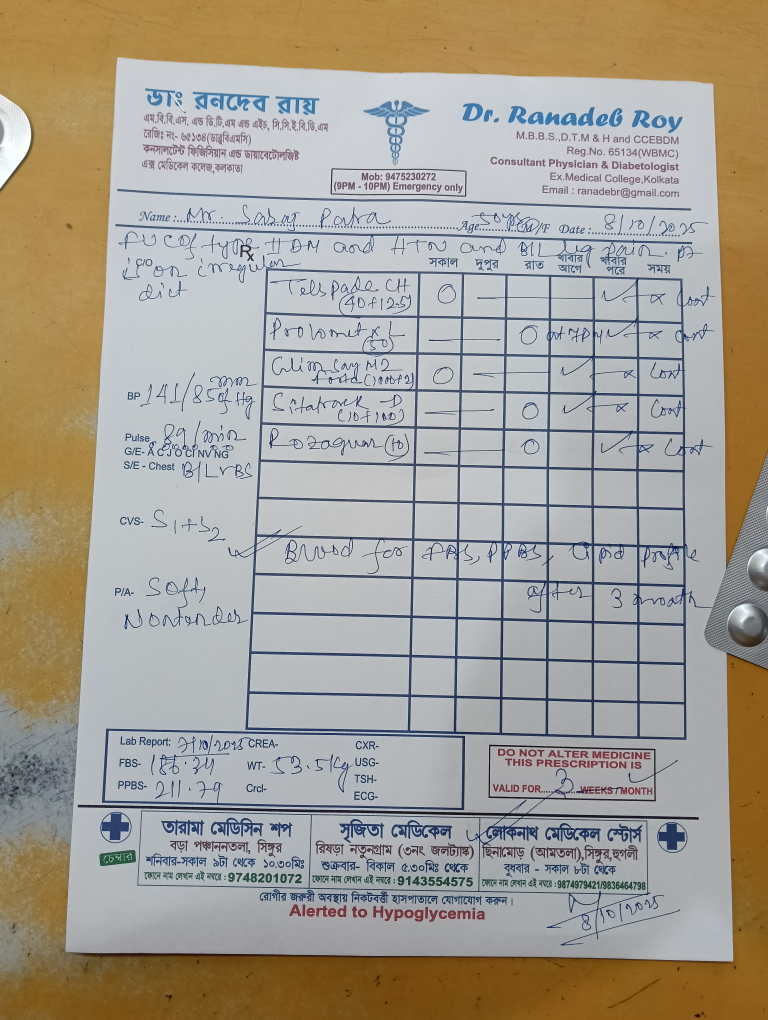 ডাঃ রনদেব রায়
এম.বি.বি.এস. এন্ড ডি.টি.এম এন্ড এইচ, সি.সি.ই.বি.ডি.এম
রেজিঃ নং- ৬৫১৩৪(ডাব্লুবিএমসি)
কনসালটেন্ট ফিজিসিয়ান এন্ড ডায়াবেটোলজিষ্ট
এক্স মেডিকেল কলেজ,কলকাতা
Mob: 9475230272
(9PM - 10PM) Emergency only
Dr. Ranadeb Roy
M.B.B.S.,D.T.M & H and CCEBDM
Reg.No. 65134(WBMC)
Consultant Physician & Diabetologist
Ex.Medical College,Kolkata
Email : ranadebr@gmail.com
Name :. Mr. Sabaj Patra Age. 50 yrs (M)/F Date : 8/10/2025
F/U C/O type II DM and HTN and B/L leg pain. pt
is on irregular
diet
Rx
সকাল দুপুর রাত খাবার আগে খাবার পরে সময়
Telspade CH O — — ✓ x Cont
(40+12.5)
Prolomet XL — — O at 7PM ✓ x Cont
(50)
Glimsay M2 O — — ✓ x Cont
forte (1000+2)
Sitatrack D — — O ✓ x Cont
(10+100)
Rozaguar (10) — — O ✓ x Cont
BP 141/85 mm of Hg
Pulse 89/min
G/E- A C J O CI NV NG
S/E - Chest B/L VBS
CVS- S1+S2
✓ Blood for FBS, PPBS, Lipid profile
after 3 month
P/A- Soft,
Nontender
Lab Report: 7/10/2025 CREA- CXR-
FBS- 186.34 WT- 53.5 kg USG-
TSH-
PPBS- 211.79 Crcl- ECG-
DO NOT ALTER MEDICINE
THIS PRESCRIPTION IS
VALID FOR 3 WEEKS / MONTH
চেম্বার
তারামা মেডিসিন শপ
বড়া পঞ্চাননতলা, সিঙ্গুর
শনিবার-সকাল ৯টা থেকে ১০.৩০মিঃ
ফোনে নাম লেখান এই নম্বরে : 9748201072
সুজিতা মেডিকেল
রিষড়া নতুনগ্রাম (৩নং জলট্যাঙ্ক)
শুক্রবার- বিকাল ৫.৩০মিঃ থেকে
ফোনে নাম লেখান এই নম্বরে : 9143554575
লোকনাথ মেডিকেল স্টোর্স
ছিনামোড় (আমতলা),সিঙ্গুর,হুগলী
বুধবার - সকাল ৮টা থেকে
ফোনে নাম লেখান এই নম্বরে : 9874979421/9836464798
রোগীর জরুরী অবস্থায় নিকটবর্তী হাসপাতালে যোগাযোগ করুন।
Alerted to Hypoglycemia
8/10/2025